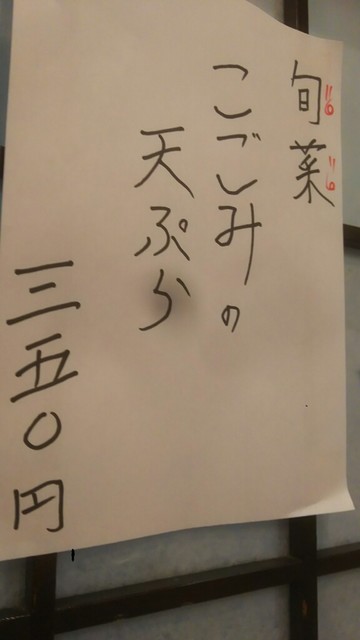 旬菜
こごみの
天ぷら
三五〇円